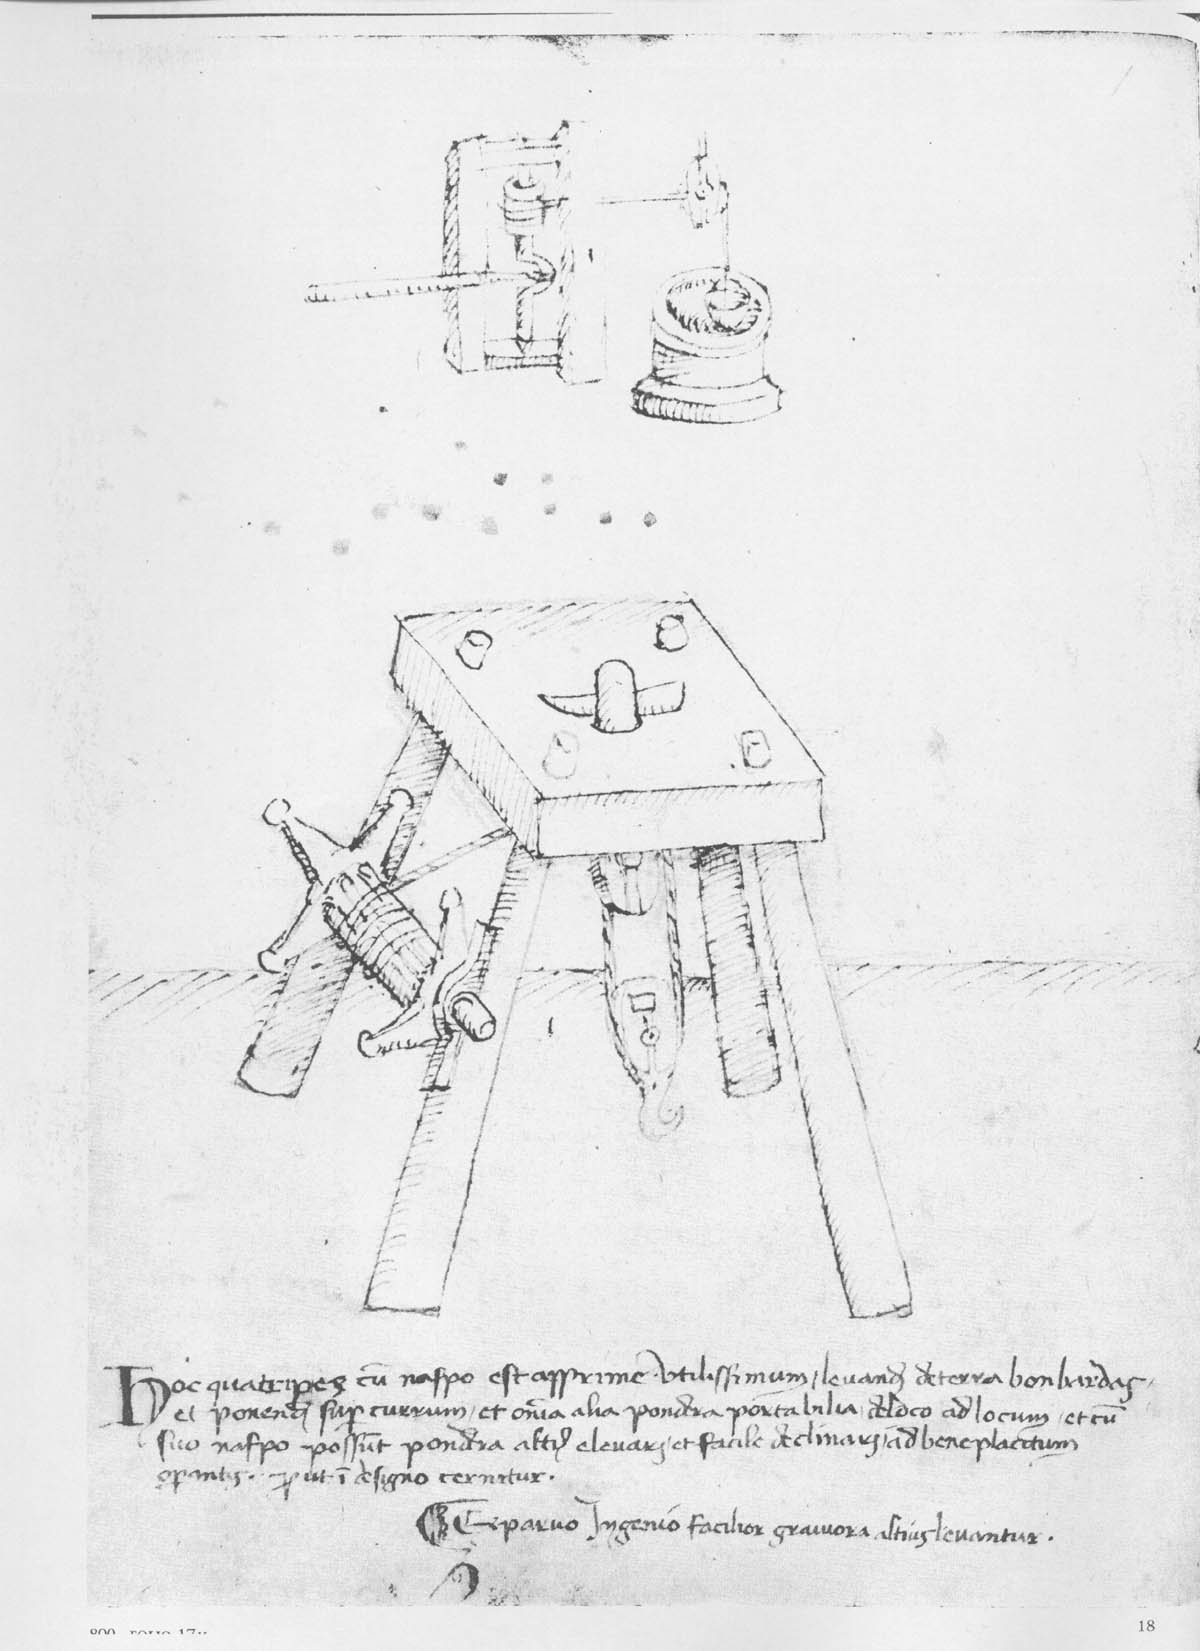 Hoc quatripes cū naspo est apprime utilissimum levand̄ de terra bonbardas
et ponend̄ sup currum et oīa alia pondera portabilia de loco ad locum et cū
suo naspo possūt pondera alti᾽ elevari et facile declinari ad beneplacitum
opantis. put ī designo cernitur.
parvo Ingenio facilior graviora altius levantur.
FOLIO 17v
18